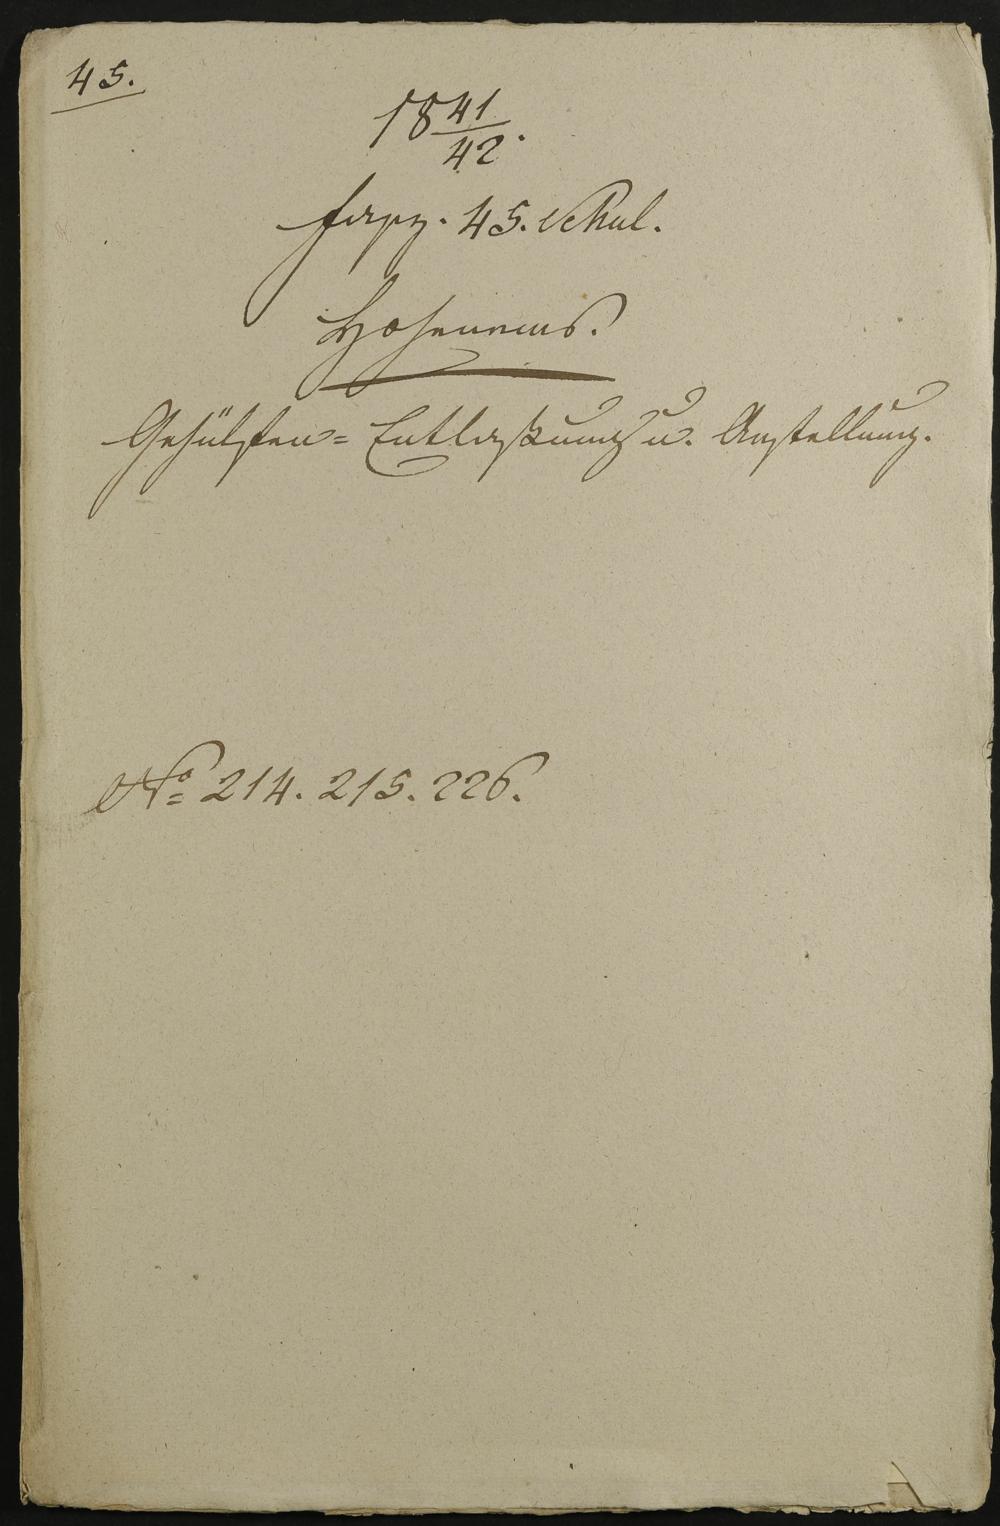 45.
18 41/42.
Fasz. 45. Schul.
Hohenems.
Gehülfen= Entlaßung u. Anstellung.
No 214. 215. 226.